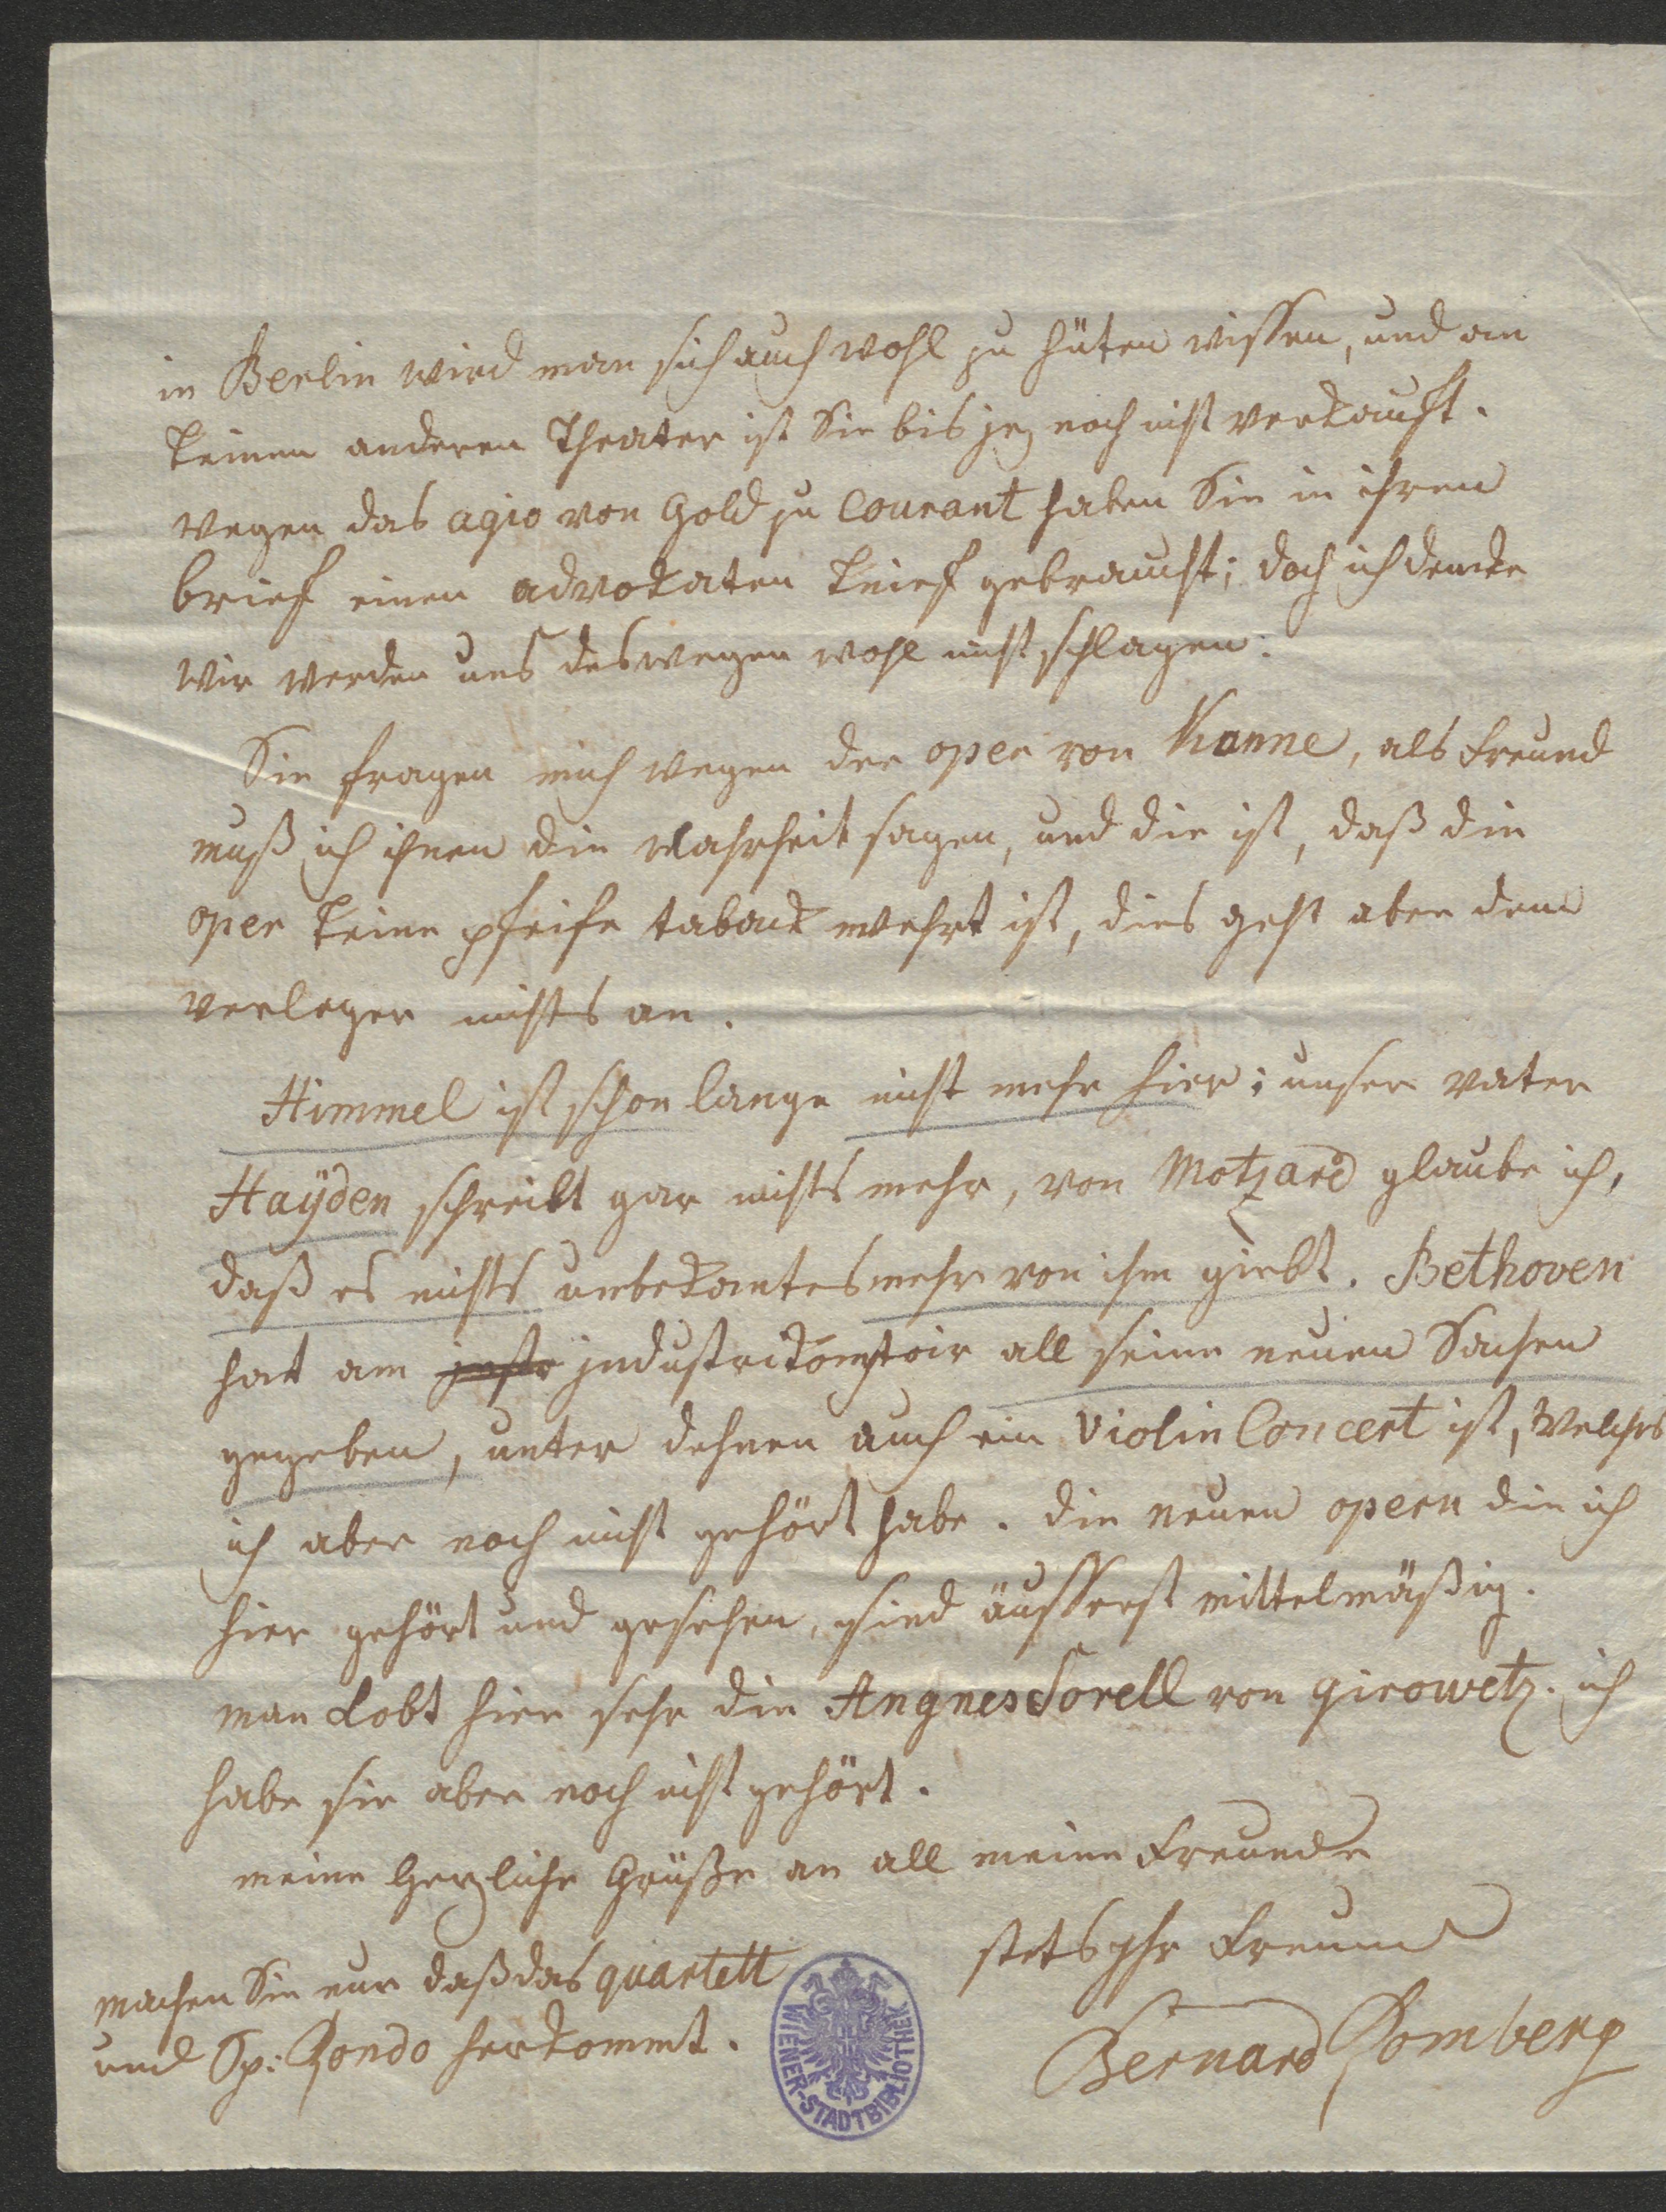 in Berlin wird man sich auch wohl zu hüten wissen, und an
keinem anderen Theater ist Sie bis jez noch nicht verkauft.
wegen das agio von Gold zu Courant haben Sie in ihren
brief einen advokaten knief gebraucht; doch ich dencke
wir werden uns deswegen wohl nicht schlagen.
Sie fragen mich wegen der oper von Kanne, als freund
muß ich ihnen die Wahrheit sagen, und die ist, daß die
oper keine pfeife taback wehrt ist, dies geht aber dem
verleger nichts an.
Himmel ist schon lange nicht mehr hier; unser vater
Haÿden schreibt gar nichts mehr, von Motzard glaube ich,
daß es nichts unbekantes mehr von ihm giebt. Bethoven
hat am industrikomptoir all seine neuen Sachen
gegeben, unter dehnen auch ein Violin Concert ist, welches
ich aber noch nicht gehört habe. die neuen opern die ich
hier gehört und gesehen, sind äusserst mittelmäßig.
man Lobt hier sehr die Angnes Sorell von girowetz. ich
habe sie aber noch nicht gehört.
meine Herzliche Grüße an all meine Freunde
stets ihr Freund
Bernard Romberg
machen Sie nur daß das quartett
und Sp: Rondo herkommt.
WIENER-STADTBIBLIOTHEK